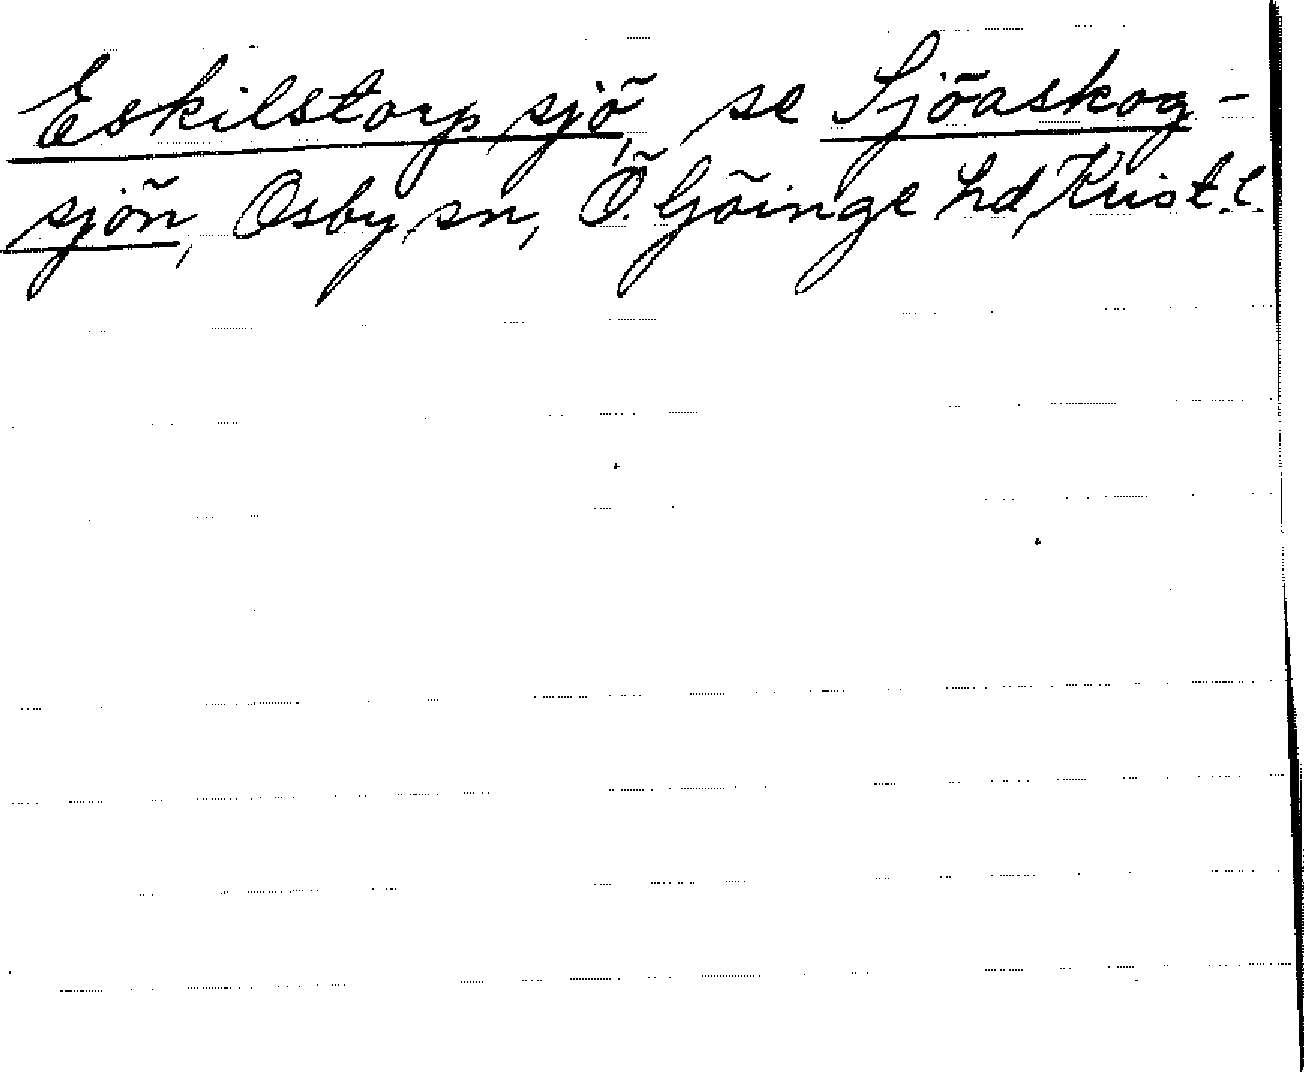 Eskilstorp sjö, se Sjöaskog-
sjön, Osby sn, Ö. Göinge hd, Krist. l.